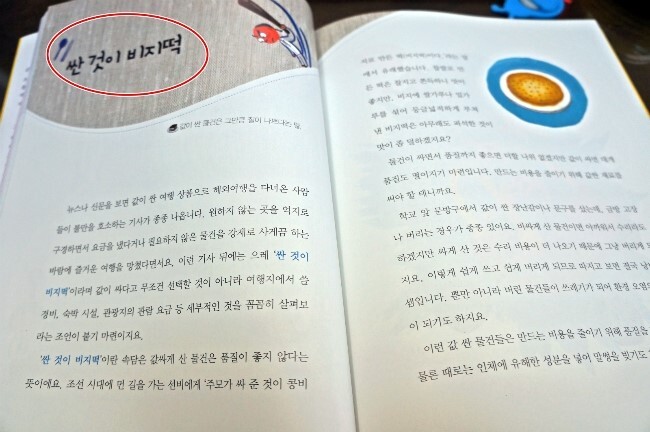 싼 것이 비지떡
값이 싼 물건은 그만큼 질이 나쁘다는 말
뉴스나 신문을 보면 값이 싼 여행 상품으로 해외여행을 다녀온 사람
들이 불만을 호소하는 기사가 종종 나옵니다. 원하지 않는 곳을 억지로
구경하면서 요금을 냈다거나 필요하지 않은 물건을 강제로 사게끔 하는
바람에 즐거운 여행을 망쳤다면서요. 이런 기사 뒤에는 으레 '싼 것이
비지떡'이라며 값이 싸다고 무조건 선택할 것이 아니라 여행지에서 쓸
경비, 숙박 시설, 관광지의 관람 요금 등 세부적인 것을 꼼꼼히 살펴보
라는 조언이 붙기 마련이지요.
'싼 것이 비지떡'이란 속담은 값싸게 산 물건은 품질이 좋지 않다는
뜻이에요. 조선 시대에 먼 길을 가는 선비에게 '주모가 싸 준 것이 콩비
지로 만든 떡(비지떡)이다.'라는 말
에서 유래했습니다. 찹쌀로 만
든 떡은 찰지고 쫀득하니 맛이
좋지만, 비지에 쌀가루나 밀가
루를 섞어 둥글넓적하게 부쳐
낸 비지떡은 아무래도 퍼석한 것이
맛이 좀 덜하겠지요?
물건이 싸면서 품질까지 좋으면 더할 나위 없겠지만 값이 싸면 대개
품질도 떨어지기 마련입니다. 만드는 비용을 줄이기 위해 값싼 재료를
써야 할 테니까요.
학교 앞 문방구에서 값이 싼 장난감이나 문구를 샀는데, 금방 고장
나 버리는 경우가 종종 있어요. 비싸게 산 물건이면 아까워서 수리라도
하겠지만 싸게 산 것은 수리 비용이 더 나오기 때문에 그냥 버리게 되
지요. 이렇게 쉽게 쓰고 쉽게 버리게 되므로 따지고 보면 결국
셈입니다. 뿐만 아니라 버린 물건들이 쓰레기가 되어 환경 오염의
이 되기도 하지요.
이런 값 싼 물건들은 만드는 비용을 줄이기 위해 품질을
물론 때로는 인체에 유해한 성분을 넣어 말썽을 빚기도